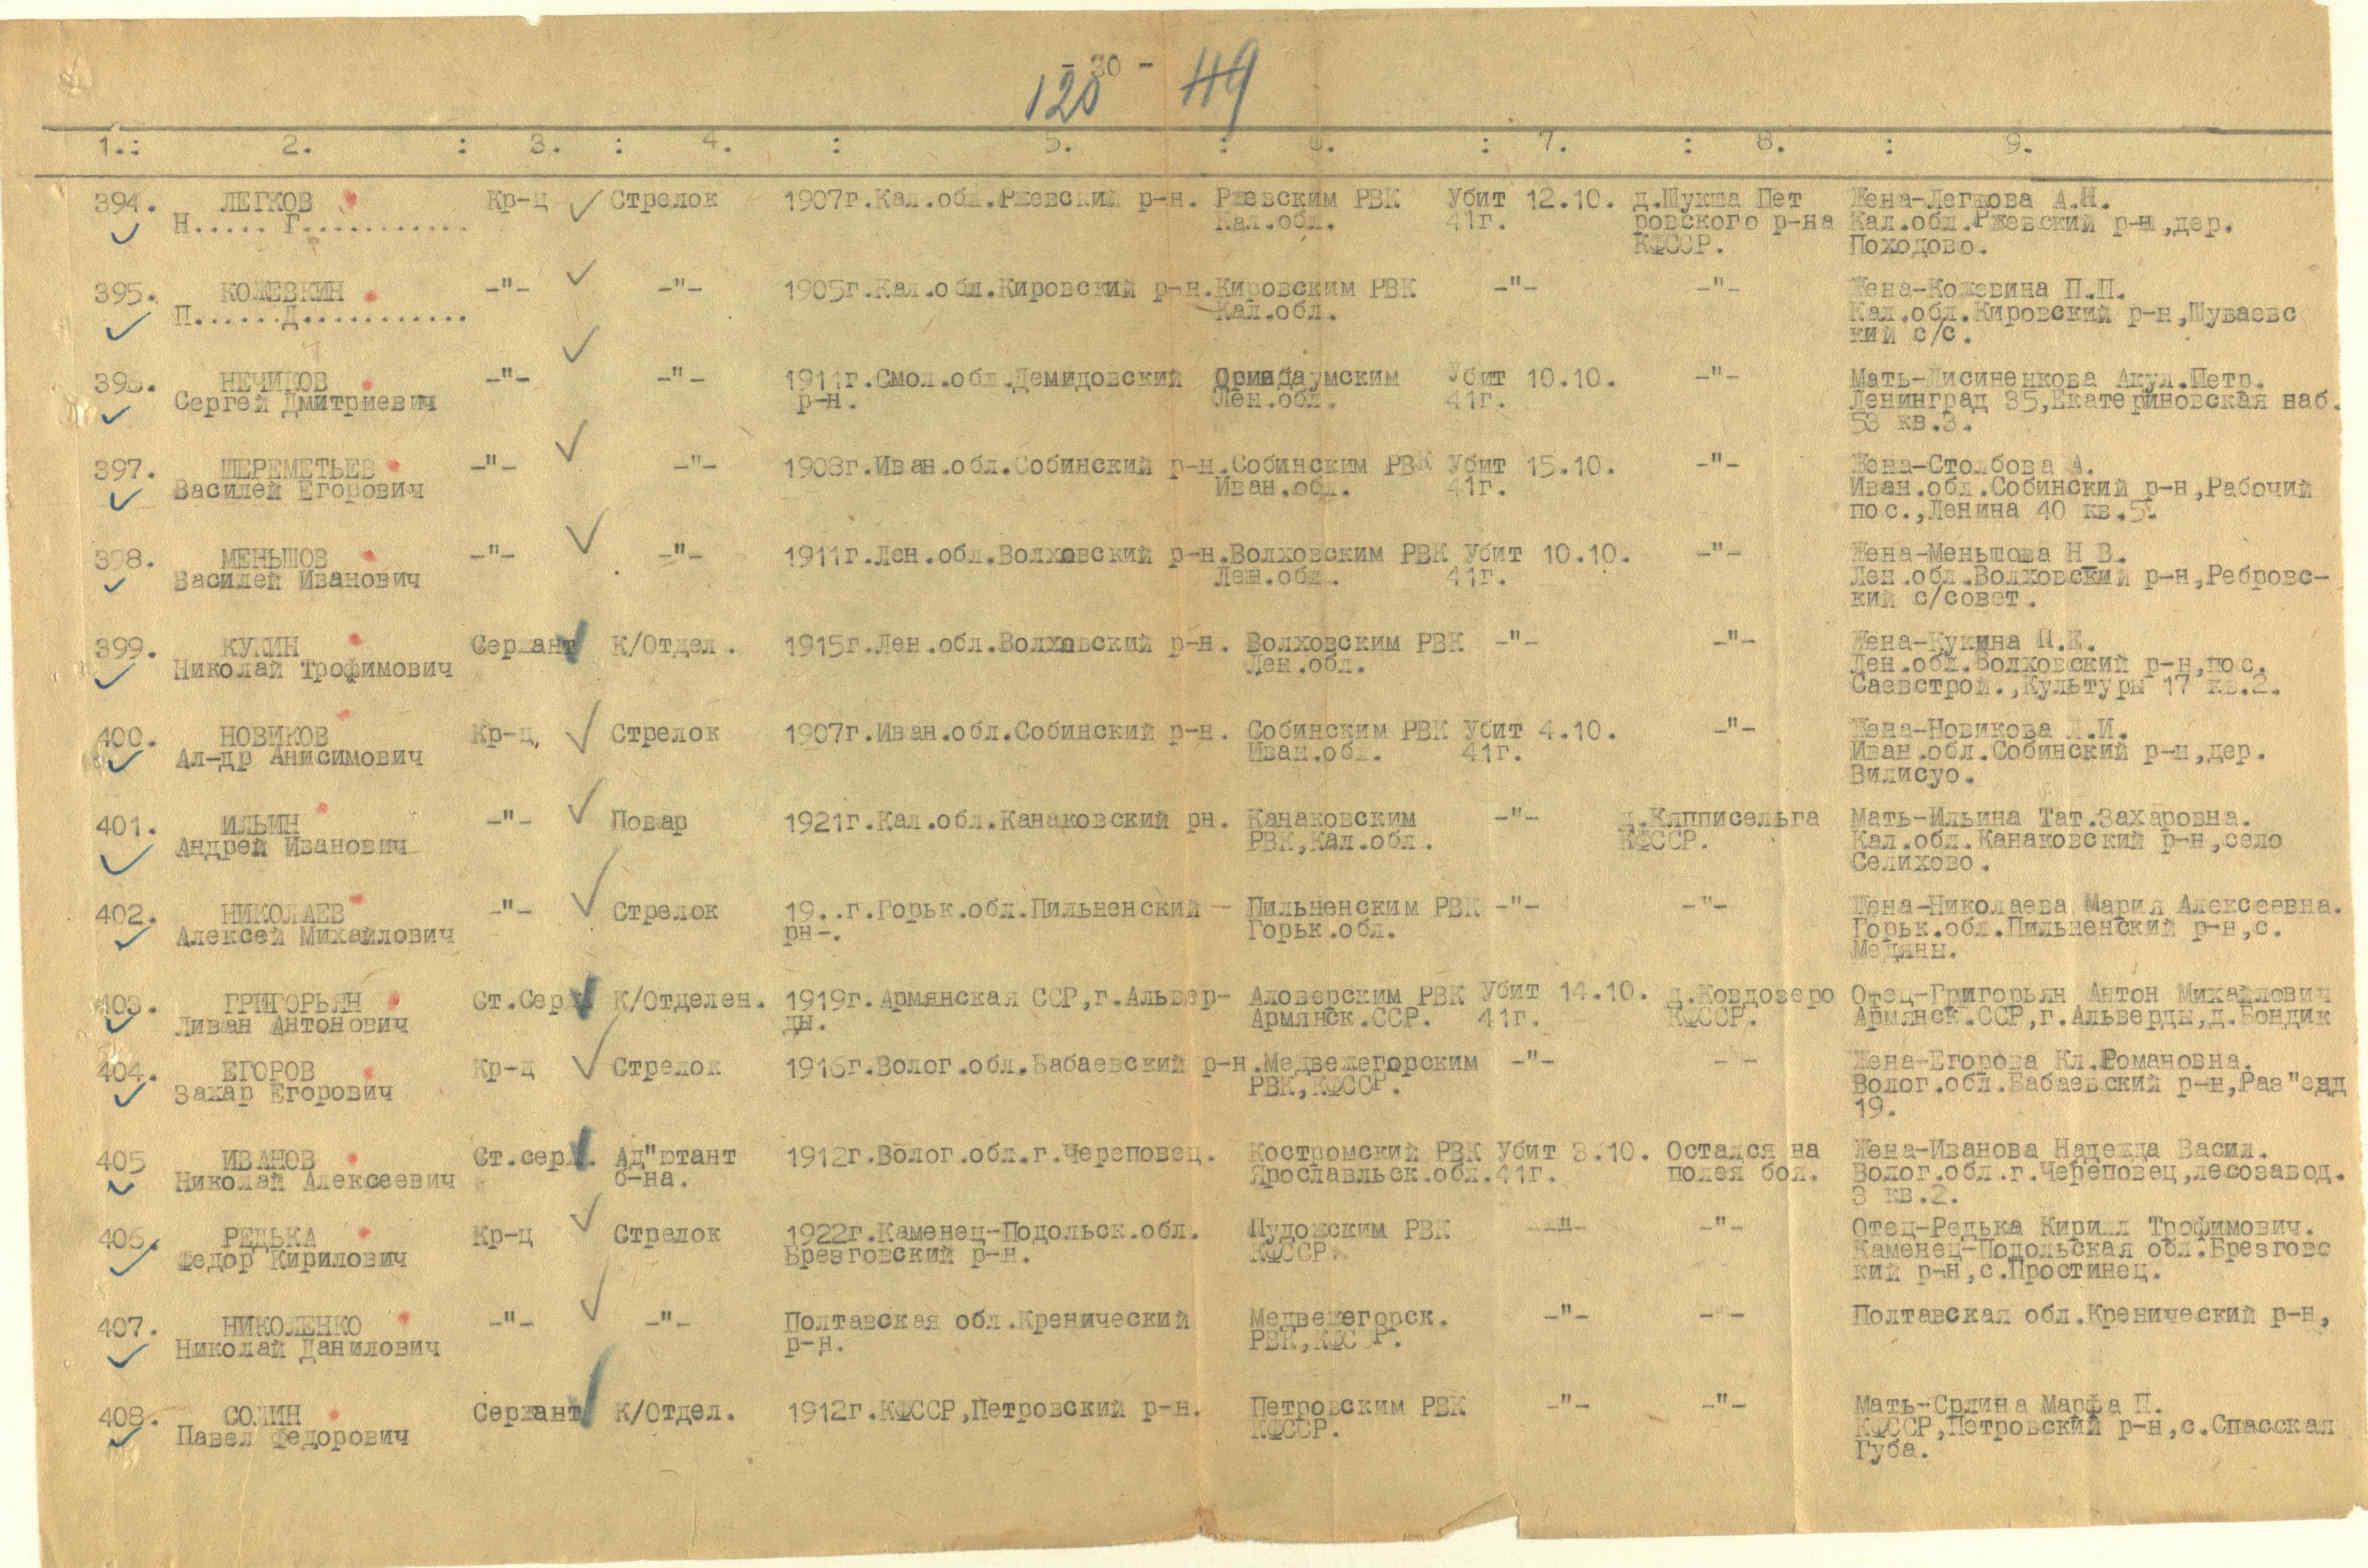 - 30 -
120 119
1.: 2. : 3. : 4. : 5. : 6. : 7. : 8. : 9.
394. ЛЕГКОВ Кр-ц Стрелок 1907г.Кал.обл.Ржевский р-н. Ржевским РВК Убит 12.10. д.Шукша Пет Жена-Легкова А.Н.
Н..... Г........... Кал.обл. 41г. ровского р-на Кал.обл.Ржевский р-н,дер.
КФССР. Походово.
395. КОЖЕВКИН -"- -"- 1905г.Кал.обл.Кировский р-н.Кировским РВК -"- -"- Жена-Кожевина П.П.
П......Д........... Кал.обл. Кал.обл.Кировский р-н,Шуваевс
кий с/с.
396. НЕЧИКОВ -"- -"- 1911г.Смол.обл.Демидовский Убит 10.10. -"- Мать-Лисиненкова Акул.Петр.
Сергей Дмитриевич р-н. Лен.обл. 41г. Ленинград 35,Екатериновская наб.
53 кв.3.
397. ШЕРЕМЕТЬЕВ -"- -"- 1908г.Иван.обл.Собинский р-н.Собинским РВК Убит 15.10. -"- Жена-Столбова А.
Василей Егорович Иван.обл. 41г. Иван.обл.Собинский р-н,Рабочий
пос.,Ленина 40 кв.5.
398. МЕНЬШОВ -"- -"- 1911г.Лен.обл.Волховский р-н.Волховским РВК Убит 10.10. -"- Жена-Меньшова Н В.
Василей Иванович Лен.обл. 41г. Лен.обл.Волховский р-н,Ребровс-
кий с/совет.
399. КУКИН Сержант К/Отдел. 1915г.Лен.обл.Волховский р-н. Волховским РВК -"- -"- Жена-Кукина П.Е.
Николай Трофимович Лен.обл. Лен.обл.Волховский р-н,пос.
Саевстрой.,Культуры 17 кв.2.
400. НОВИКОВ Кр-ц, Стрелок 1907г.Иван.обл.Собинский р-н. Собинским РВК Убит 4.10. -"- Жена-Новикова Л.И.
Ал-др Анисимович Иван.обл. 41г. Иван.обл.Собинский р-н,дер.
Вилисуо.
401. ИЛЬИН -"- Повар 1921г.Кал.обл.Канаковский рн. Канаковским -"- д.Клпписельга Мать-Ильина Тат.Захаровна.
Андрей Иванович РВК,Кал.обл. КФССР. Кал.обл.Канаковский р-н,село
Селихово.
402. НИКОЛАЕВ -"- Стрелок 19..г.Горьк.обл.Пильненский Пильненским РВК -"- -"- Жена-Николаева Мария Алексеевна.
Алексей Михайлович рн-. Горьк.обл. Горьк.обл.Пильненский р-н,с.
Медяны.
403. ГРИГОРЬЯН Ст.Серж К/Отделен. 1919г.Армянская ССР,г.Альвер- Аловерским РВК Убит 14.10. д.Ковдозеро Отец-Григорьян Антон Михайлович
Ливан Антонович ды. Армянск.ССР. 41г. КФССР. Армянск.ССР,г.Альверды,д.Бондик
404. ЕГОРОВ Кр-ц Стрелок 1916г.Волог.обл.Бабаевский р-н.Медвежегорским -"- - - Жена-Егорова Кл.Романовна.
Захар Егорович РВК,КФССР. Волог.обл.Бабаевский р-н,Раз"езд
19.
405 ИВАНОВ Ст.серж. Ад"ютант 1912г.Волог.обл.г.Череповец. Костромский РВК Убит 3.10. Остался на Жена-Иванова Надежда Васил.
Николай Алексеевич б-на. Ярославльск.обл.41г. полея бол. Волог.обл.г.Череповец,лесозавод.
3 кв.2.
406. РЕДЬКА Кр-ц Стрелок 1922г.Каменец-Подольск.обл. Пудожским РВК -"- -"- Отец-Редька Кирилл Трофимович.
Федор Кирилович Брезговский р-н. КФССР. Каменец-Подольская обл.Брезговс
кий р-н,с.Простинец.
407. НИКОЛЕНКО -"- -"- Полтавская обл.Кренический Медвежегорск. -"- - - Полтавская обл.Кренический р-н,
Николай Данилович р-н. РВК,КФССР.
408. СОЛИН Сержант К/Отдел. 1912г.КФССР,Петровский р-н. Петровским РВК -"- -"- Мать-Срлина Марфа П.
Павел Федорович КФССР. КФССР,Петровский р-н,с.Спасская
Губа.